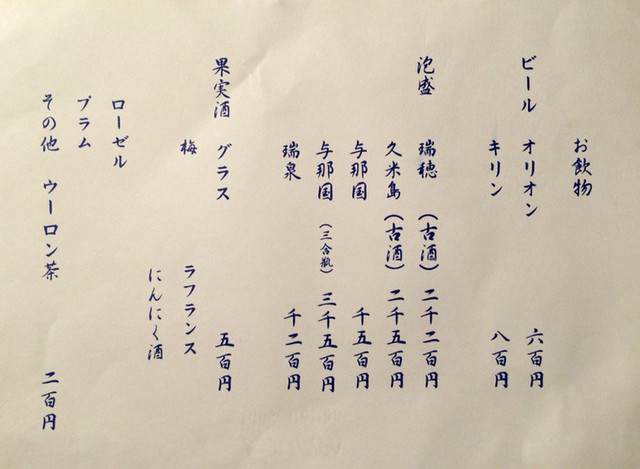 お飲物
ビール オリオン 六百円
キリン 八百円
泡盛 瑞穂 (古酒) 二千二百円
久米島 (古酒) 二千五百円
与那国 千五百円
与那国 (三合瓶) 三千五百円
瑞泉 千二百円
果実酒 グラス 五百円
梅 ラフランス
にんにく酒
ローゼル
プラム
その他 ウーロン茶 二百円